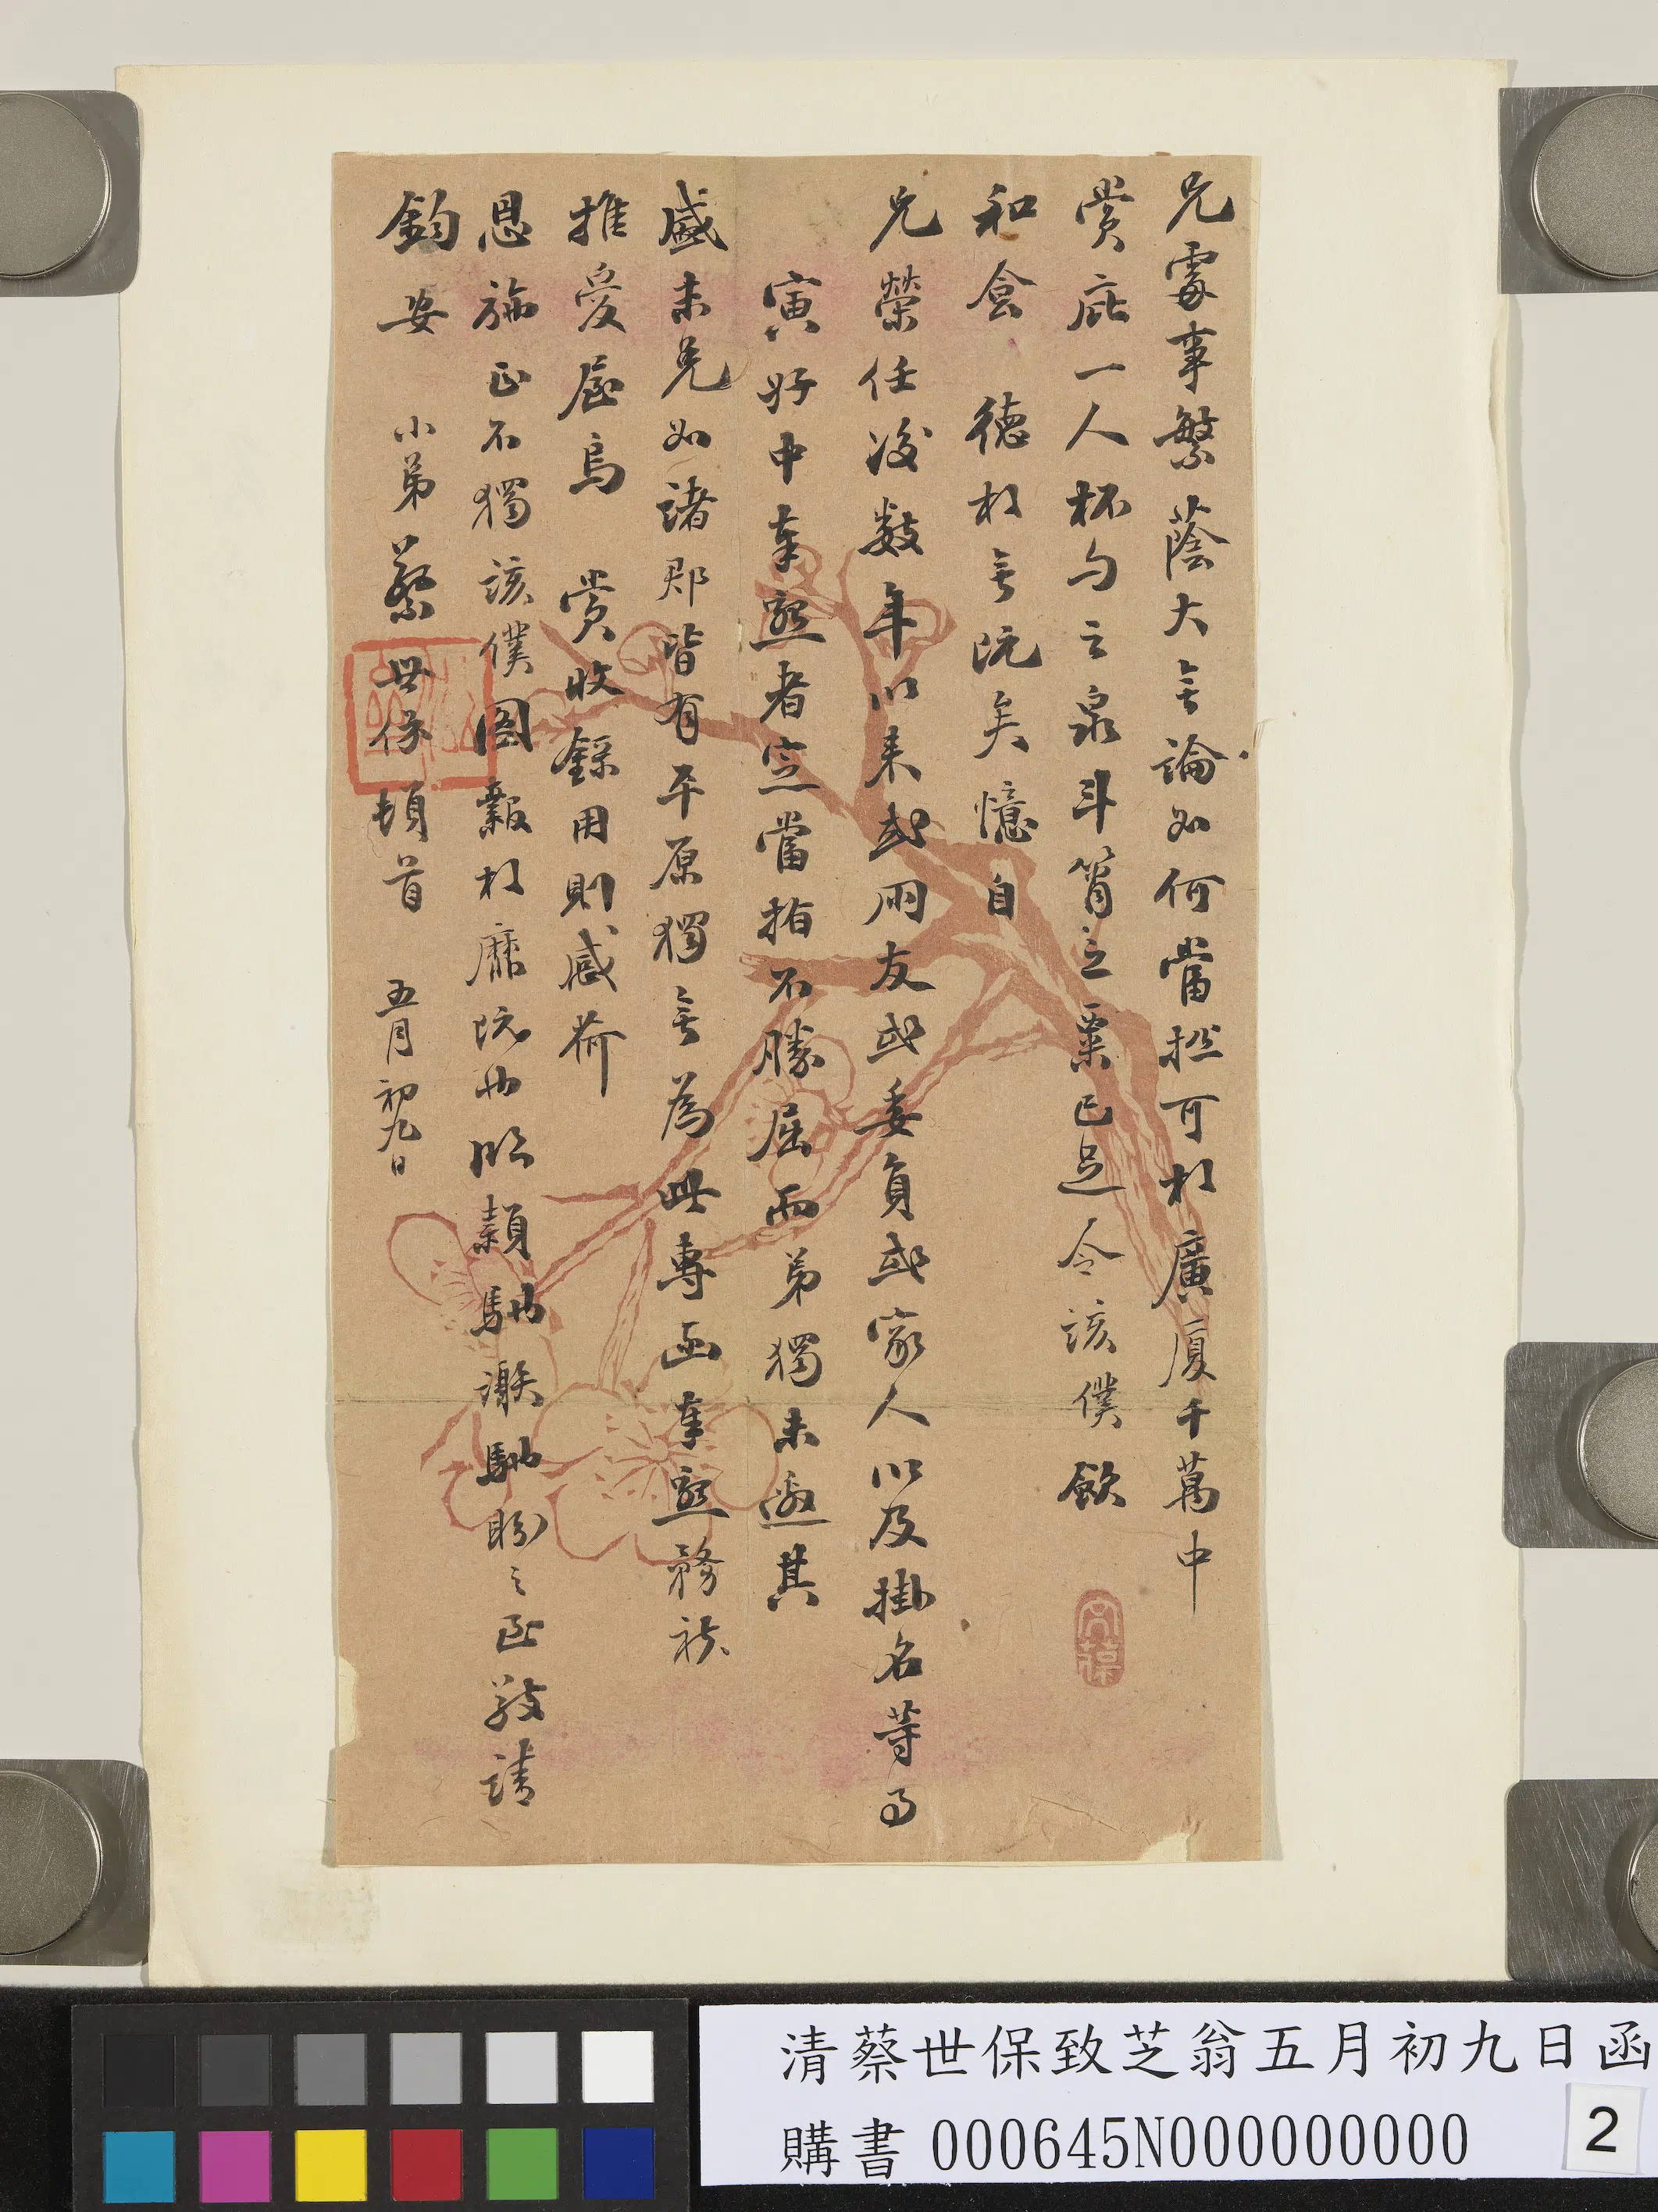 兄處事繁蔭大無論如何當撚可於廣廈千萬中
賞庇一人杯勺之泉斗筲之粟已足令該僕飲
和食 德於無既矣憶自
兄榮任後數年以來或同友或委員或家人以及掛名等事
寅好中奉懇者定當指不勝屈而弟獨未邀其
盛未免如諸郡皆有平原獨無為此專函奉懇務祈
推愛屋烏 賞收錄用則感荷
恩施正不獨該僕圖報於靡既也臨穎馳溯馳盼之至敬請
鈞安 小弟蔡世保頓首 五月初九日
清蔡世保致芝翁五月初九日函
購書 000645N000000000
2